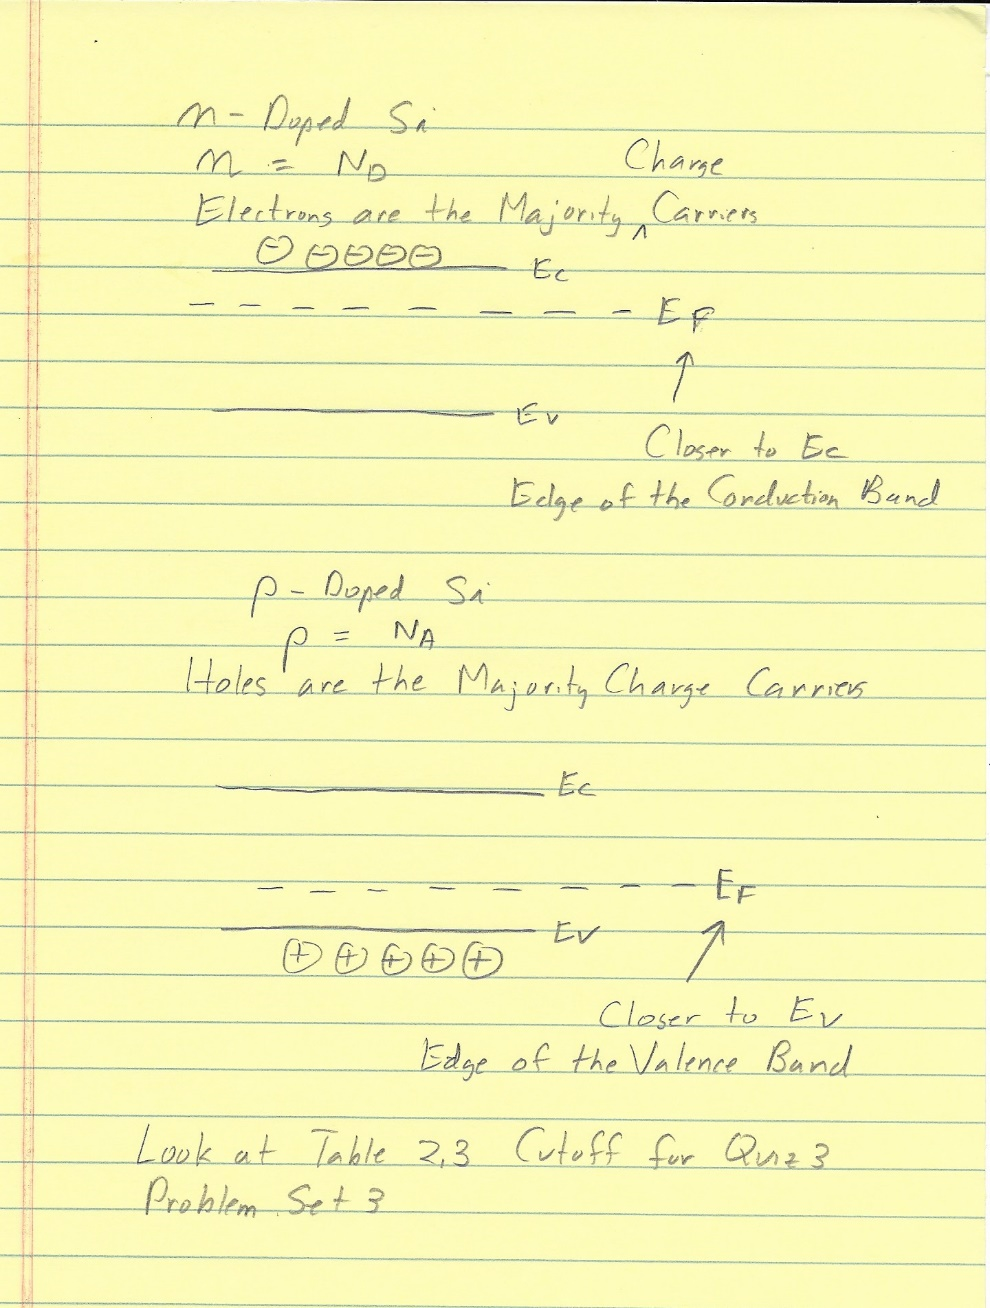 n- Doped Si
n = ND
Charge
Electrons are the Majority ^ Carriers
- - - - - Ec
EF
Ev
Closer to Ec
Edge of the Conduction Band
p- Doped Si
p = NA
Holes are the Majority Charge Carriers
Ec
EF
Ev
+ + + + +
Closer to Ev
Edge of the Valence Band
Look at Table 2.3 Cutoff for Quiz 3
Problem Set 3